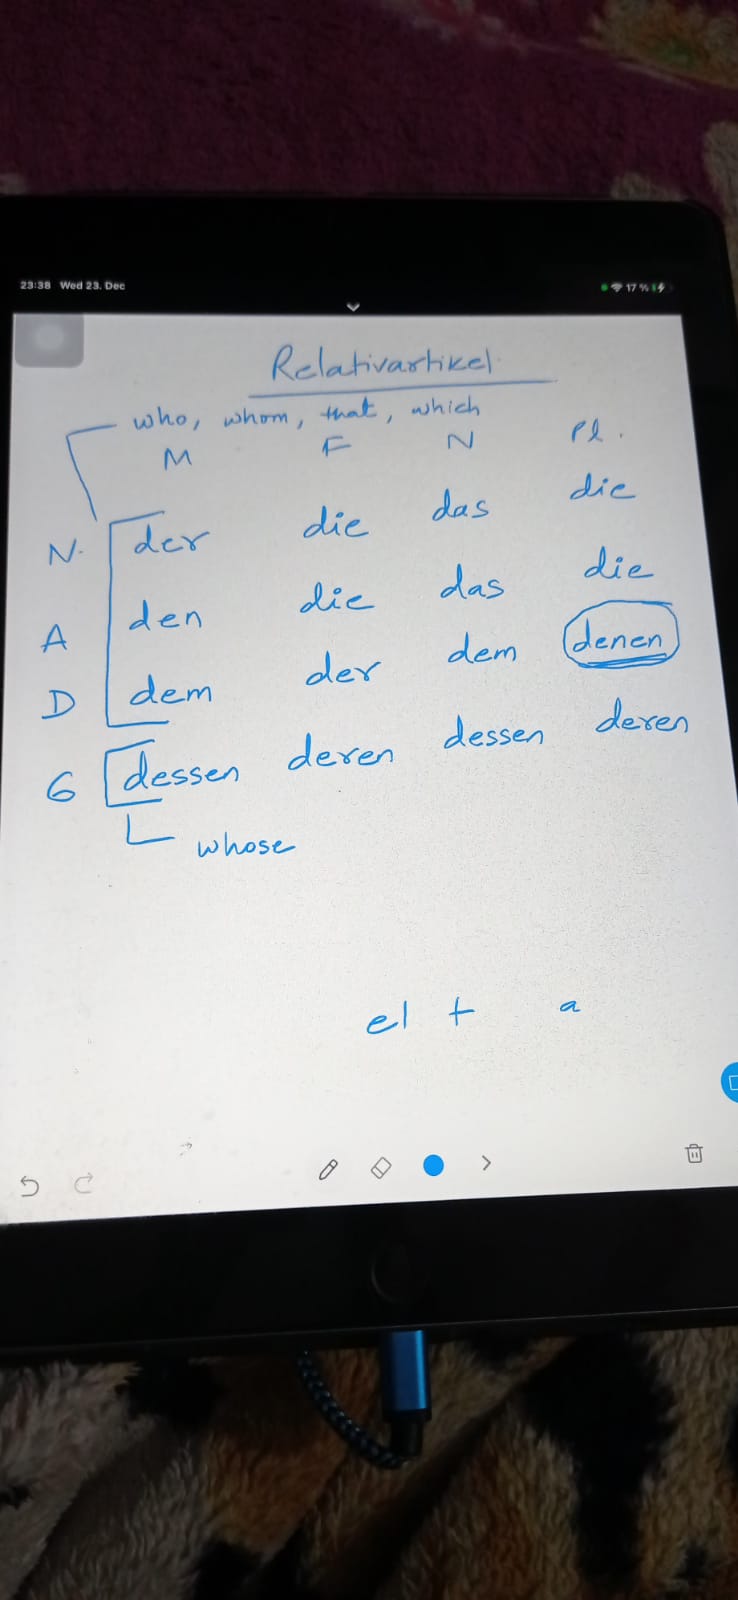 23:38 Wed 23. Dec 17 %
Relativartikel
who, whom, that, which
M F N Pl.
N. der die das die
A den die das die
D dem der dem denen
G dessen deren dessen deren
whose
el + a